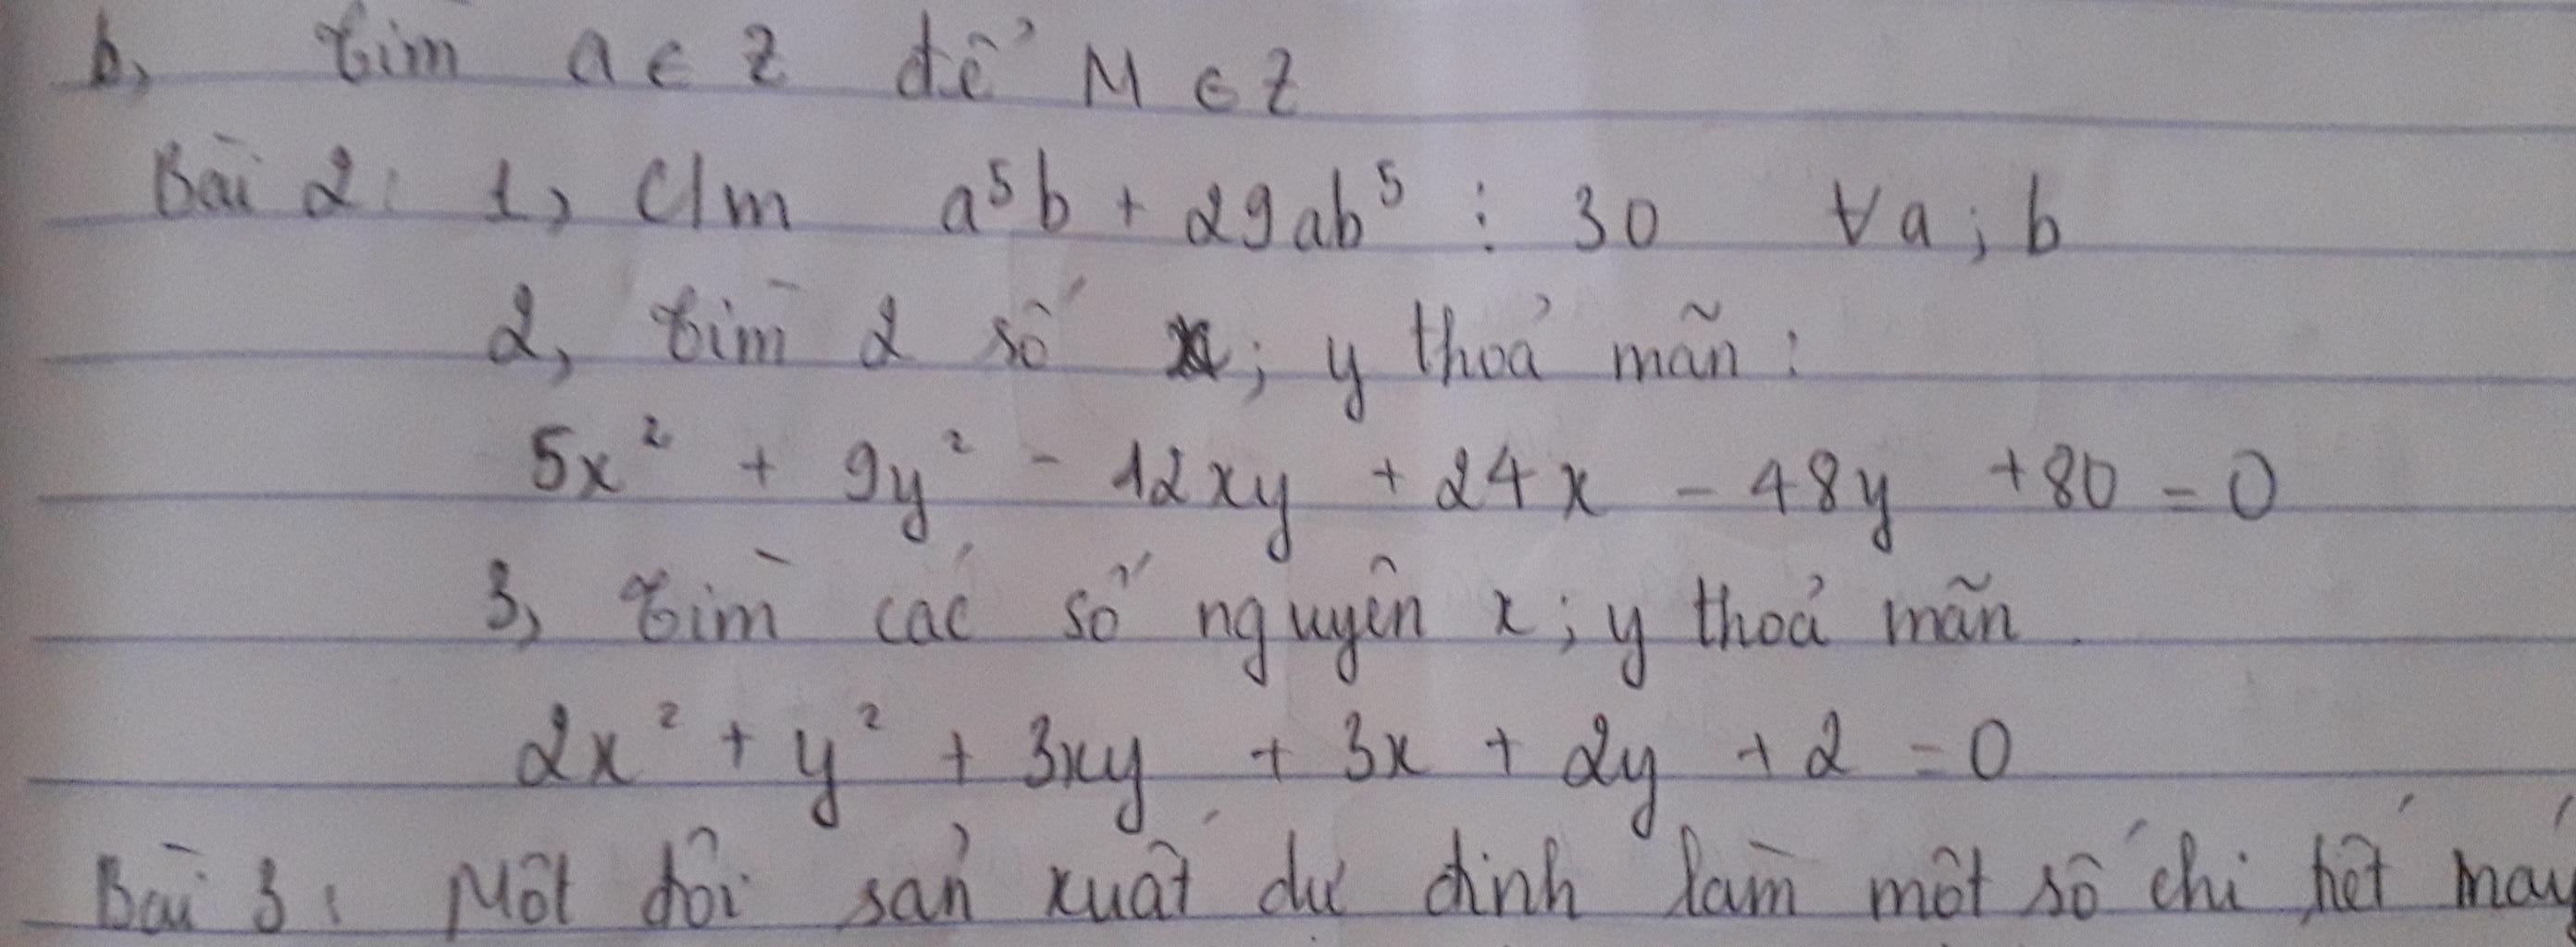 b, tìm a ∈ Z để M ∈ Z
Bài 2: 1, C/m a⁵b + 29ab⁵ ⋮ 30 ∀a; b
2, tìm 2 số x; y thoả mãn:
5x² + 9y² - 12xy + 24x - 48y + 80 = 0
3, tìm các số nguyên x; y thoả mãn
2x² + y² + 3xy + 3x + 2y + 2 = 0
Bài 3: Một đội sản xuất dự định làm một số chi tiết máy